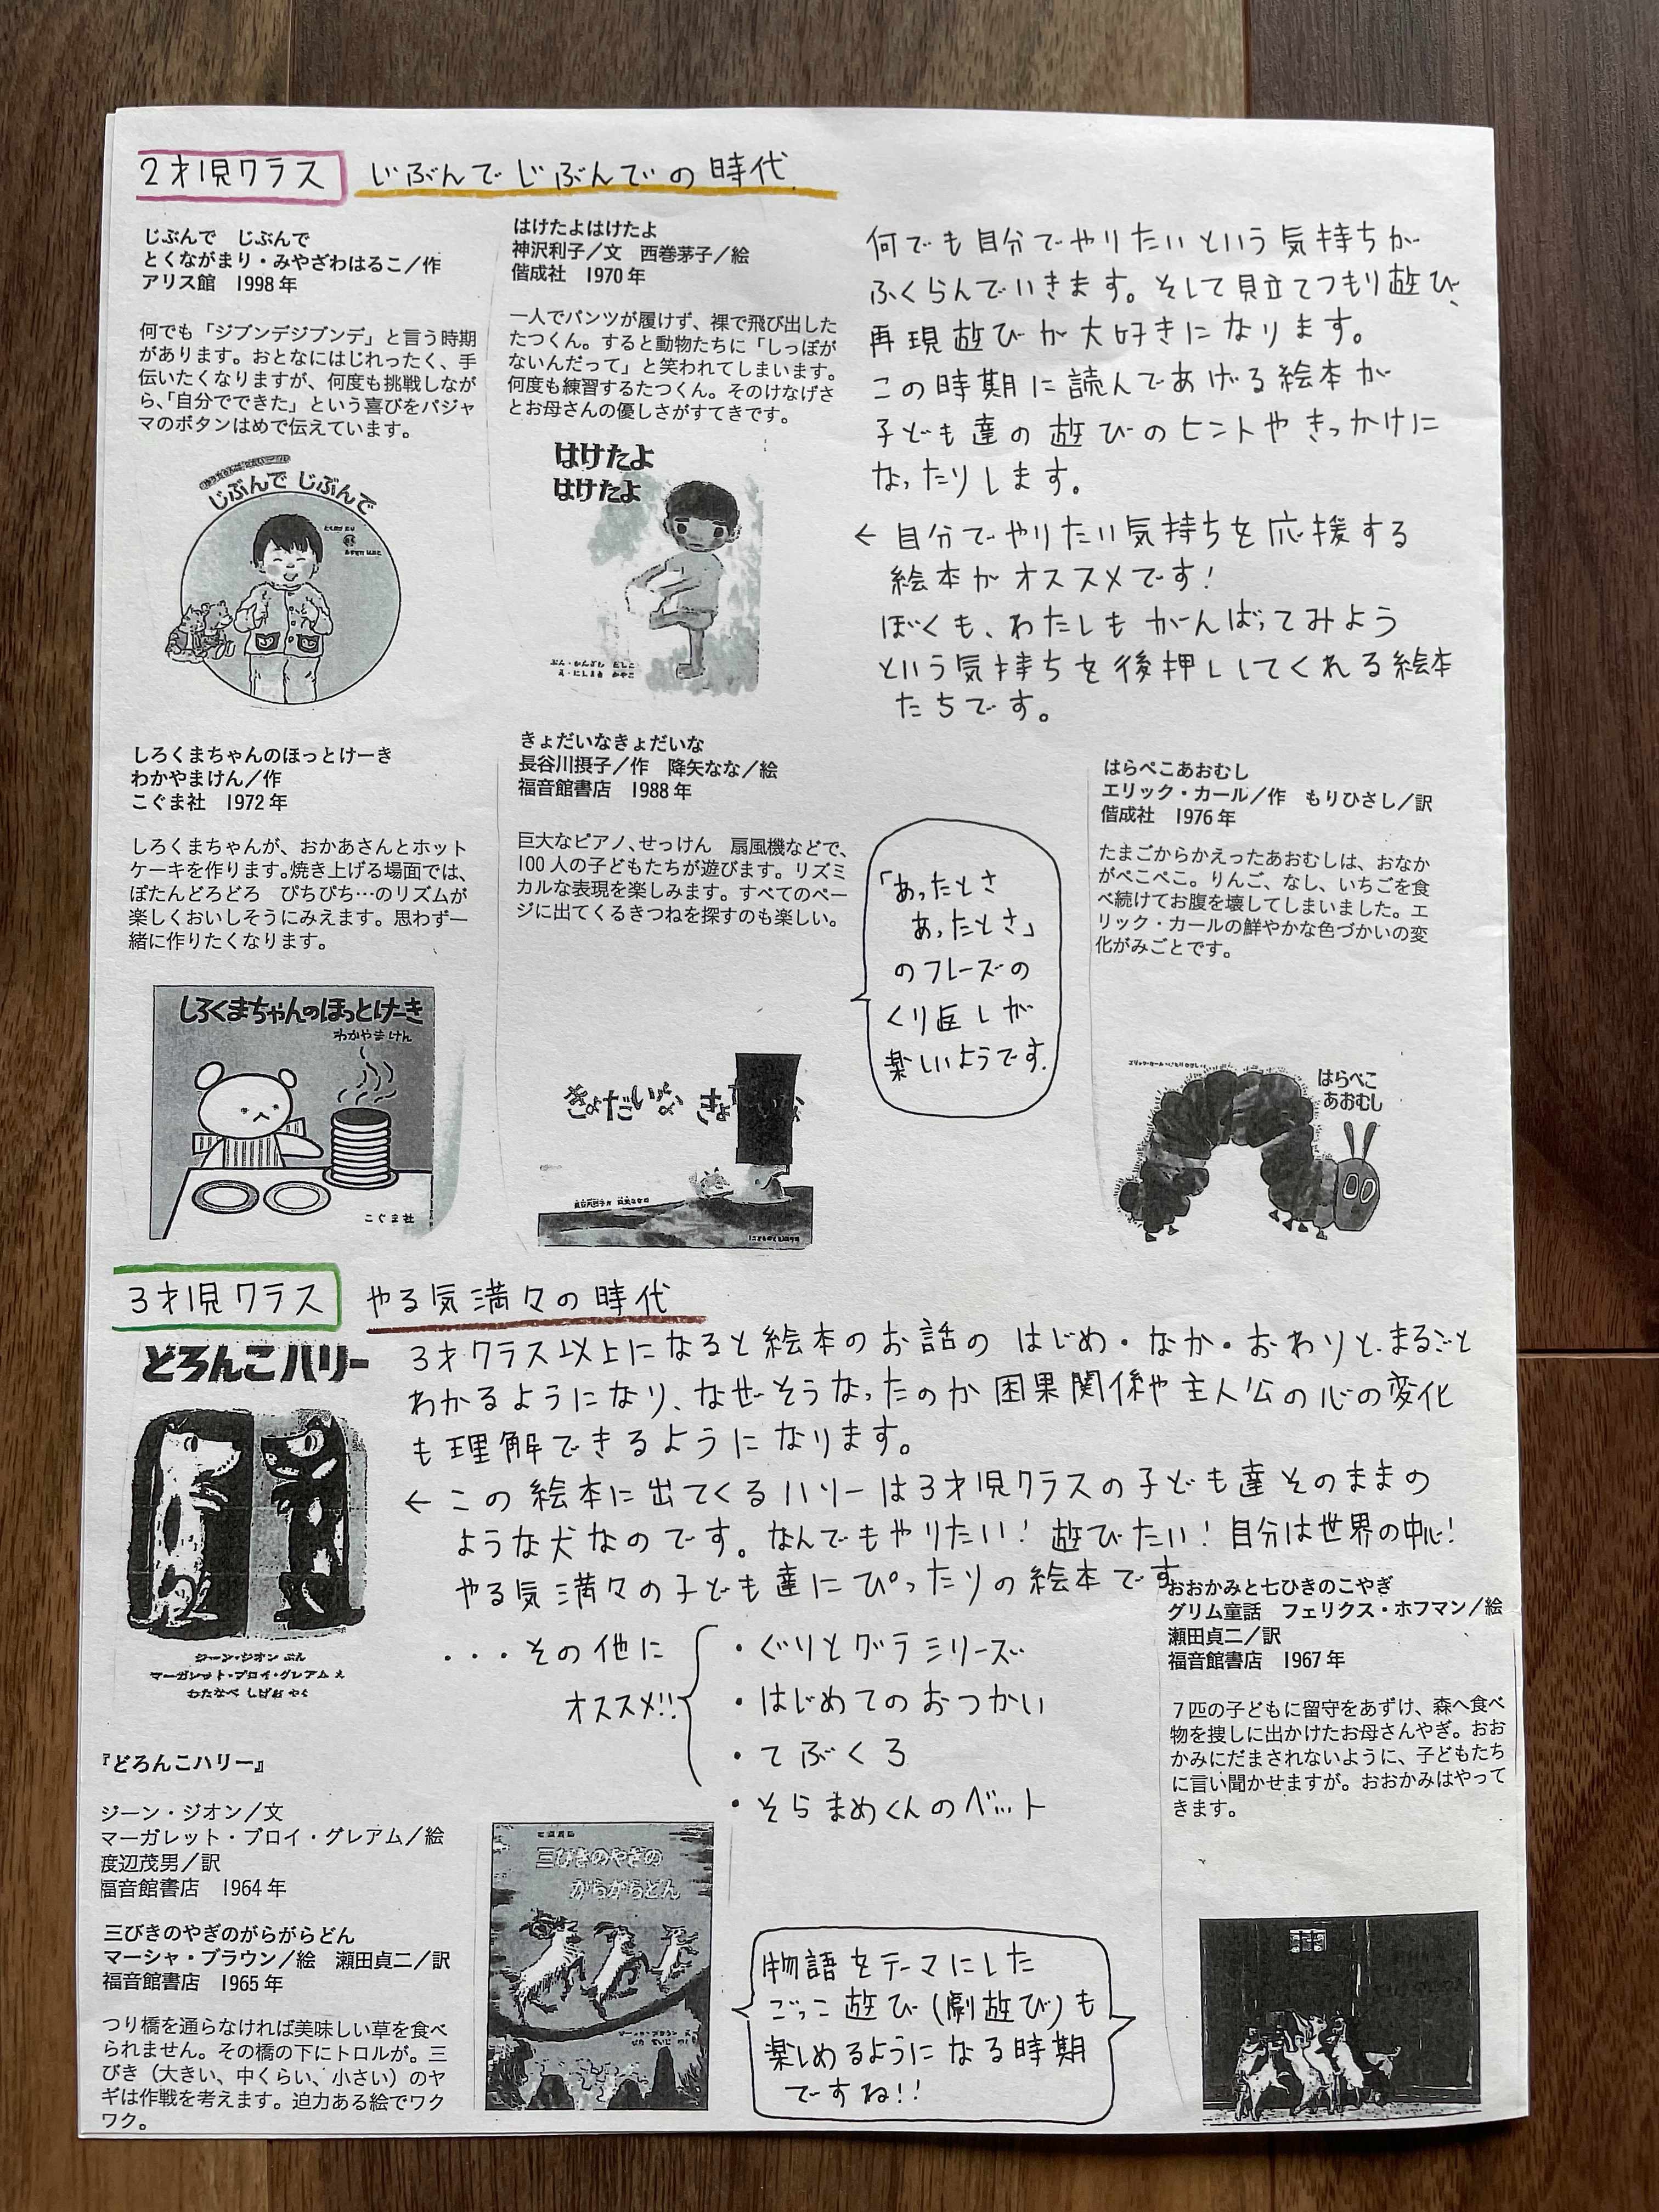 2才児クラス じぶんでじぶんでの時代
じぶんで じぶんで
とくながまり・みやざわはるこ／作
アリス館 1998年
何でも「ジブンデジブンデ」と言う時期
があります。おとなにはじれったく、手
伝いたくなりますが、何度も挑戦しなが
ら、「自分でできた」という喜びをパジャ
マのボタンはめで伝えています。
じぶんで じぶんで
はけたよはけたよ
神沢利子／文 西巻茅子／絵
偕成社 1970年
一人でパンツが履けず、裸で飛び出した
たつくん。すると動物たちに「しっぽが
ないんだって」と笑われてしまいます。
何度も練習するたつくん。そのけなげさ
とお母さんの優しさがすてきです。
はけたよ
はけたよ
ぶん・かんざわ としこ
え・にしまき かやこ
何でも自分でやりたいという気持ちが
ふくらんでいきます。そして見立てつもり遊び、
再現遊びが大好きになります。
この時期に読んであげる絵本が
子ども達の遊びのヒントやきっかけに
なったりします。
← 自分でやりたい気持ちを応援する
絵本がオススメです!
ぼくも、わたしもがんばってみよう
という気持ちを後押ししてくれる絵本
たちです。
しろくまちゃんのほっとけーき
わかやまけん／作
こぐま社 1972年
しろくまちゃんが、おかあさんとホット
ケーキを作ります。焼き上げる場面では、
ぼたんどろどろ ぴちぴち…のリズムが
楽しくおいしそうにみえます。思わず一
緒に作りたくなります。
しろくまちゃんのほっとけーき
わかやまけん
こぐま社
きょだいなきょだいな
長谷川摂子／作 降矢なな／絵
福音館書店 1988年
巨大なピアノ、せっけん 扇風機などで、
100人の子どもたちが遊びます。リズミ
カルな表現を楽しみます。すべてのペー
ジに出てくるきつねを探すのも楽しい。
きょだいな
「あったとさ
あったとさ」
のフレーズの
くり返しが
楽しいようです.
はらぺこあおむし
エリック・カール／作 もりひさし／訳
偕成社 1976年
たまごからかえったあおむしは、おなか
がぺこぺこ。りんご、なし、いちごを食
べ続けてお腹を壊してしまいました。エ
リック・カールの鮮やかな色づかいの変
化がみごとです。
はらぺこ
あおむし
3才児クラス やる気満々の時代
3才クラス以上になると絵本のお話の はじめ・なか・おわりと、まるごと
わかるようになり、なぜそうなったのか因果関係や主人公の心の変化
も理解できるようになります。
← この絵本に出てくるハリーは3才児クラスの子ども達そのままの
ような犬なのです。なんでもやりたい! 遊びたい! 自分は世界の中心!
やる気満々の子ども達にぴったりの絵本です
どろんこハリー
ジーン・ジオン ぶん
マーガレット・ブロイ・グレアム え
わたなべ しげお やく
『どろんこハリー』
ジーン・ジオン／文
マーガレット・ブロイ・グレアム／絵
渡辺茂男／訳
福音館書店 1964年
・・・その他に
オススメ!!
・ぐりとグラシリーズ
・はじめてのおつかい
・てぶくろ
・そらまめくんのベット
三びきのやぎのがらがらどん
マーシャ・ブラウン／絵 瀬田貞二／訳
福音館書店 1965年
つり橋を通らなければ美味しい草を食べ
られません。その橋の下にトロルが。三
びき（大きい、中くらい、小さい）のヤ
ギは作戦を考えます。迫力ある絵でワク
ワク。
三びきのやぎの
がらがらどん
物語をテーマにした
ごっこ遊び(劇遊び)も
楽しめるようになる時期
ですね!!
おおかみと七ひきのこやぎ
グリム童話 フェリクス・ホフマン／絵
瀬田貞二／訳
福音館書店 1967年
7匹の子どもに留守をあずけ、森へ食べ
物を捜しに出かけたお母さんやぎ。おお
かみにだまされないように、子どもたち
に言い聞かせますが。おおかみはやって
きます。